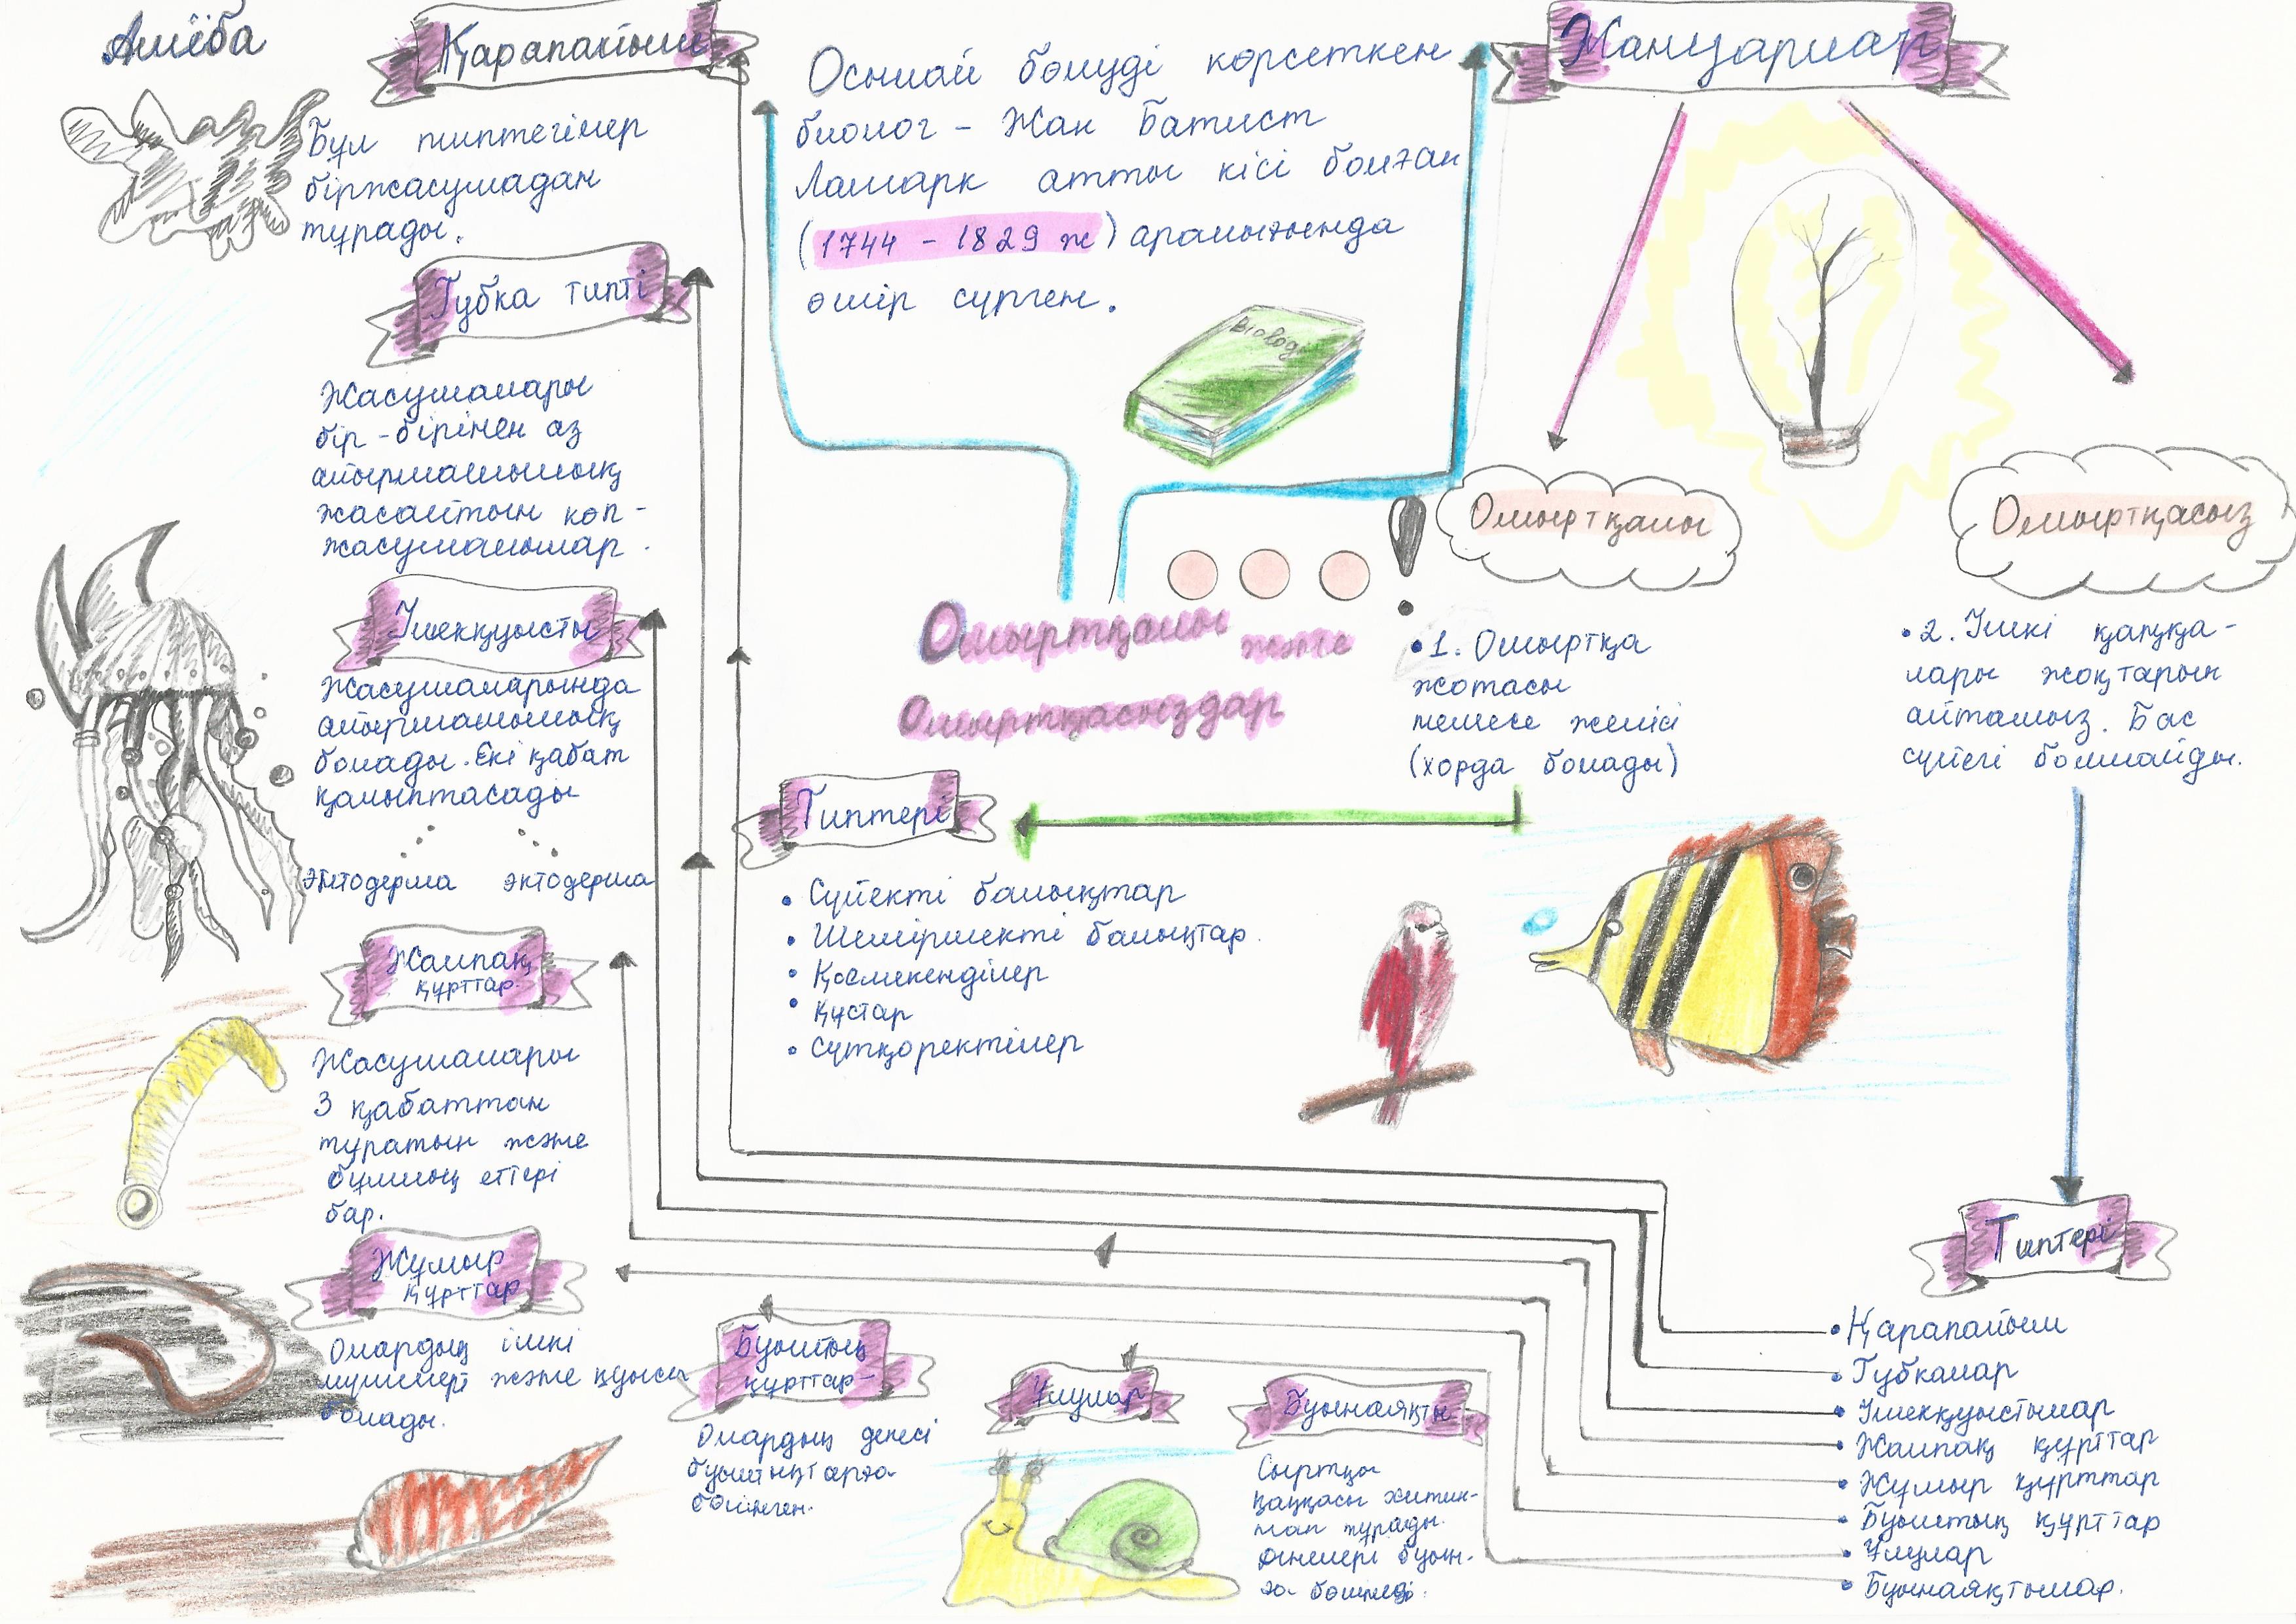 Амёба
Қарапайым
Бұл типтегілер
біржасушадан
тұрады.
Губка типті
Жасушалары
бір-бірінен аз
айырмашылық
жасайтын көп-
жасушалылар.
Ішекқуысты
Жасушаларында
айырмашылық
болады. Екі қабат
қалыптасады
энтодерма эктодерма
Жалпақ
құрттар
Жасушалары
3 қабаттан
тұратын және
бұлшық еттері
бар.
Жұмыр
құрттар
Олардың ішкі
мүшелері және қуысы
болады.
Осылай бөлуді көрсеткен
биолог - Жан Батист
Ламарк атты кісі болған
(1744 - 1829 ж) аралығында
өмір сүрген.
Biologi
Жануарлар
Омыртқалы
Омыртқасыз
Омыртқалы және
Омыртқасыздар
•1. Омыртқа
жотасы
немесе желісі
(хорда болады)
•2. Ішкі қаңқа-
лары жоқтарын
айтамыз. Бас
сүйегі болмайды.
Типтері
• Сүйекті балықтар
• Шеміршекті балықтар.
• Қосмекенділер
• Құстар
• Сүтқоректілер
Типтері
• Қарапайым
• Губкалар
• Ішекқуыстылар
• Жалпақ құрттар
• Жұмыр құрттар
• Буылтық құрттар
• Ұлулар
• Буынаяқтылар.
Буылтық
құрттар-
Олардың денесі
буылтықтарға
бөлінген.
Ұлулар
Буынаяқты
Сыртқы
қаңқасы хитин-
нан тұрады.
Денелері буын-
ға бөлінеді.